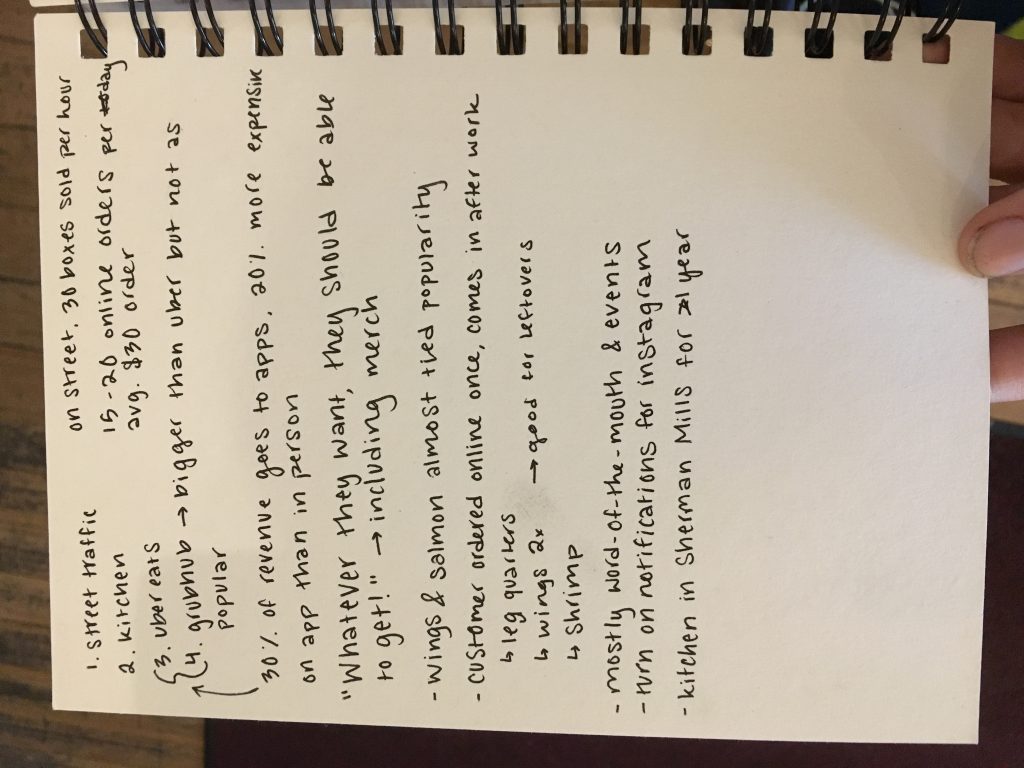 1. street traffic
2. kitchen
3. uber eats
4. grubhub → bigger than uber but not as
popular
on street, 30 boxes sold per hour
15-20 online orders per day
avg. $30 order
30% of revenue goes to apps, 20% more expensive
on app than in person
"Whatever they want, they should be able
to get!" → including merch
- wings & salmon almost tied popularity
- customer ordered online once, comes in after work
↳ leg quarters
↳ wings 2x → good for leftovers
↳ shrimp
- mostly word-of-the-mouth & events
- turn on notifications for instagram
- kitchen in Sherman Mills for 1 year